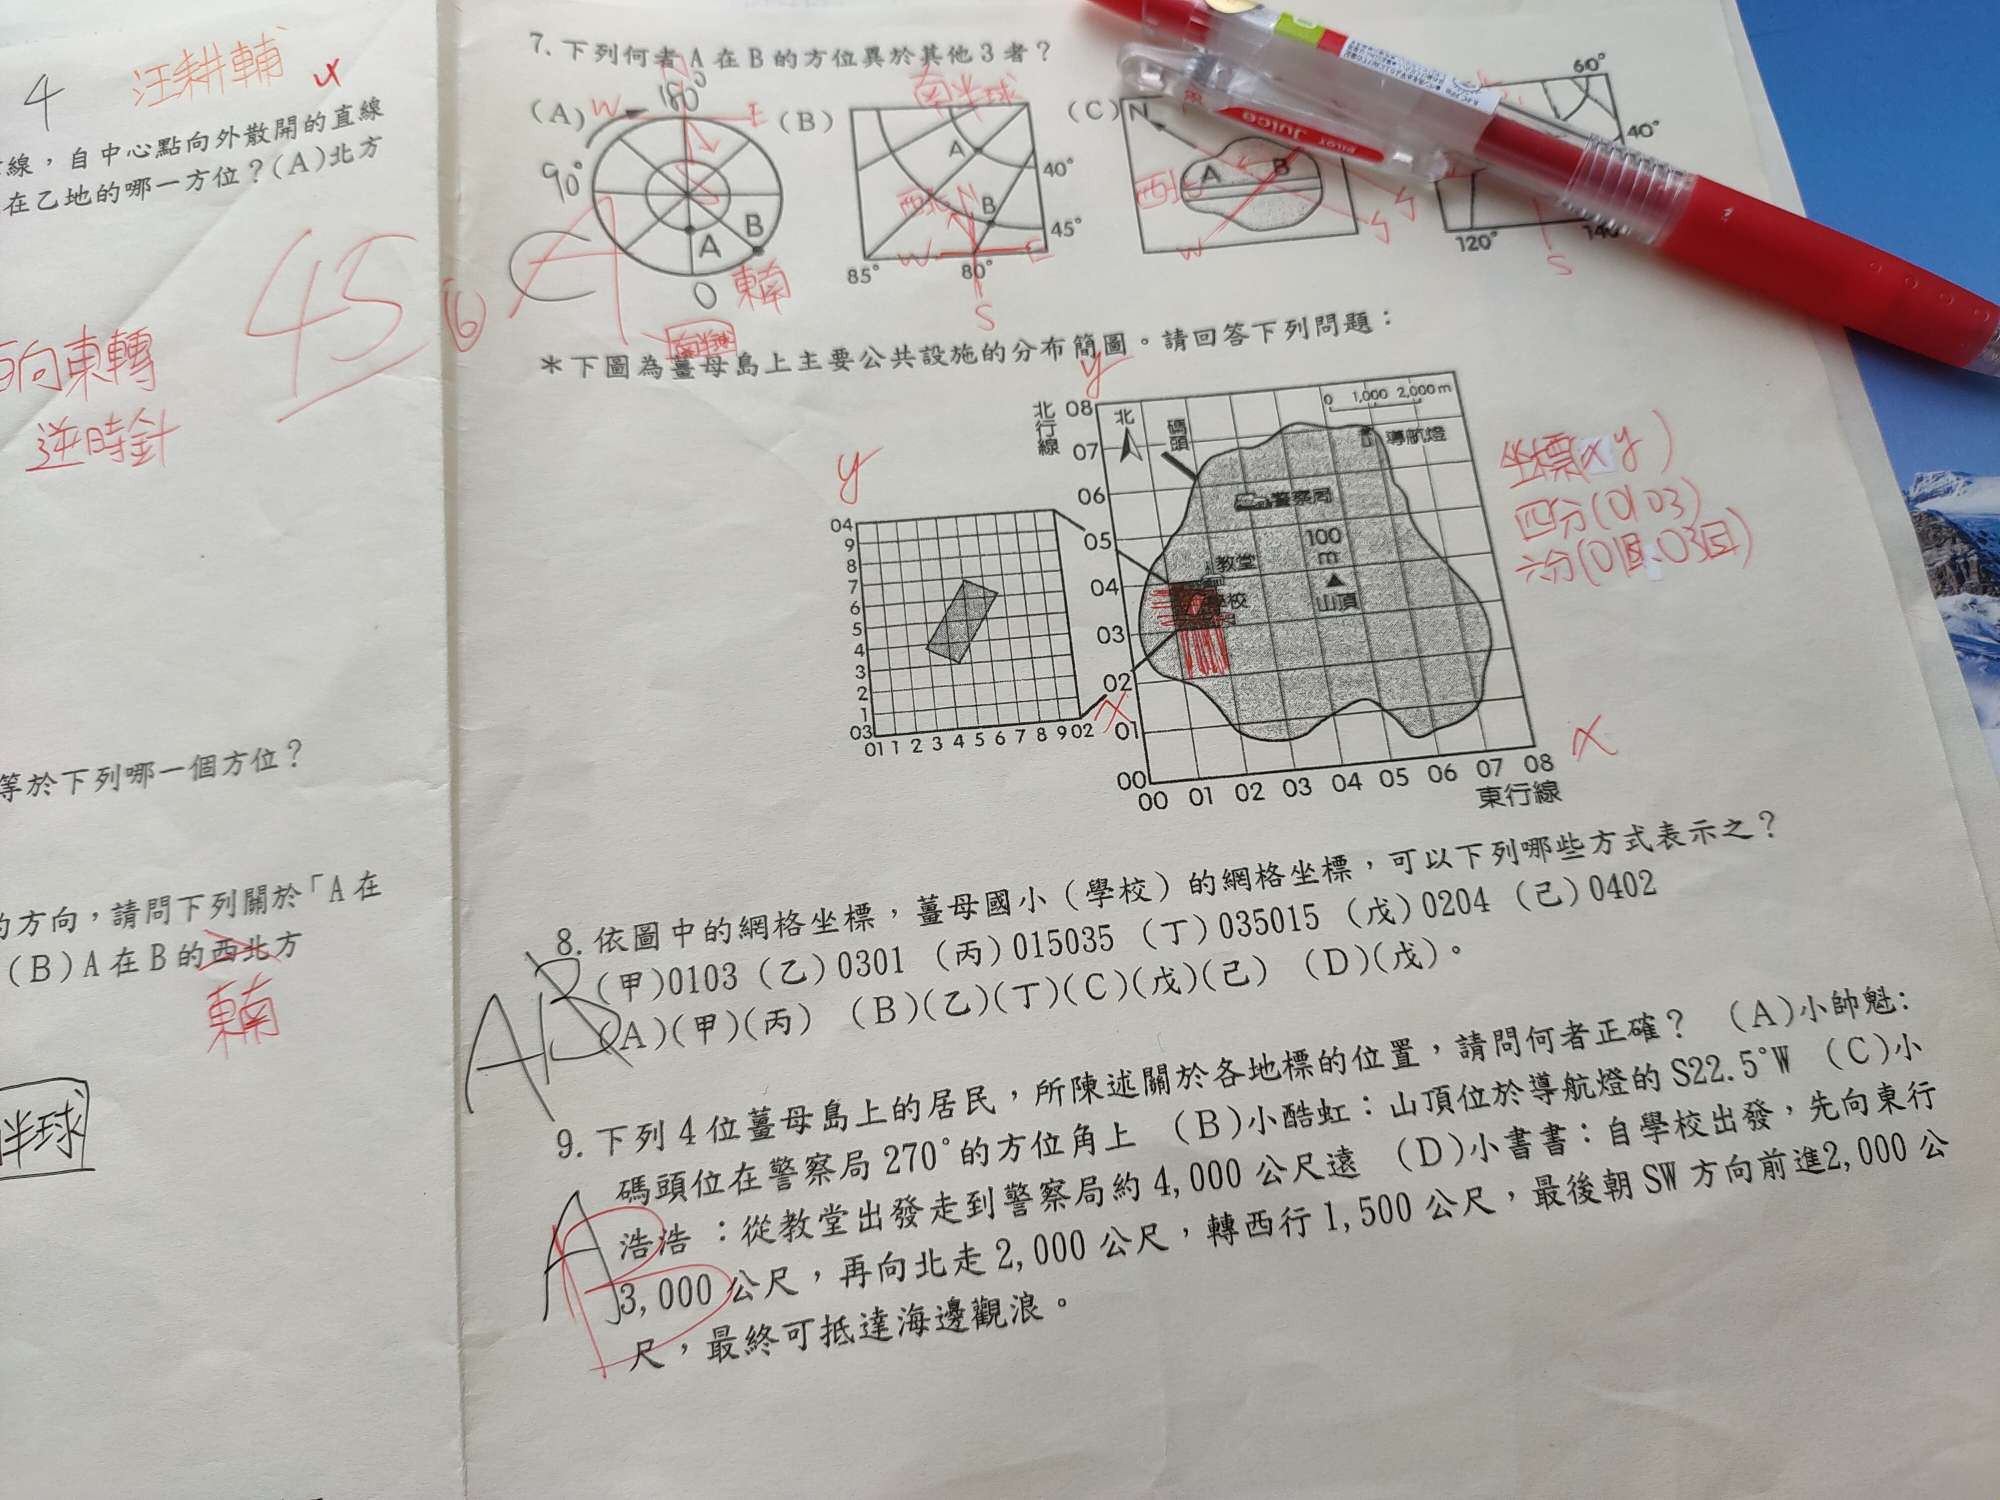 4 汪耕輔
線，自中心點向外散開的直線
在乙地的哪一方位？(A)北方
45
向東轉
逆時針
等於下列哪一個方位？
的方向，請問下列關於「A在
(B)A在B的西北方
東南
半球
7. 下列何者A在B的方位異於其他3者？
(A) W 180° E
90°
A B
0 東南
南半球
(B) 南半球
A 40°
西北 N
B 45°
W E
85° 80°
S
(C) N
A B
西北
W S
60°
40°
120° 140°
S
PILOT Juice
＊下圖為薑母島上主要公共設施的分布簡圖。請回答下列問題：
y
北行線
08 07 06 05 04 03 02 01 00
北
碼頭
0 1,000 2,000m
導航燈
警察局
教堂
100 m
山頂
學校
00 01 02 03 04 05 06 07 08
東行線
x
y
04 9 8 7 6 5 4 3 2 1 03
01 1 2 3 4 5 6 7 8 9 02
x
坐標(x y)
四分(01 03)
8. 依圖中的網格坐標，薑母國小（學校）的網格坐標，可以下列哪些方式表示之？
(甲)0103 (乙)0301 (丙)015035 (丁)035015 (戊)0204 (己)0402
(A)(甲)(丙) (B)(乙)(丁)(C)(戊)(己) (D)(戊)。
9. 下列4位薑母島上的居民，所陳述關於各地標的位置，請問何者正確？ (A)小帥魁：
碼頭位在警察局270°的方位角上 (B)小酷虹：山頂位於導航燈的S22.5°W (C)小
浩浩：從教堂出發走到警察局約4,000公尺遠 (D)小書書：自學校出發，先向東行
3,000公尺，再向北走2,000公尺，轉西行1,500公尺，最後朝SW方向前進2,000公
尺，最終可抵達海邊觀浪。